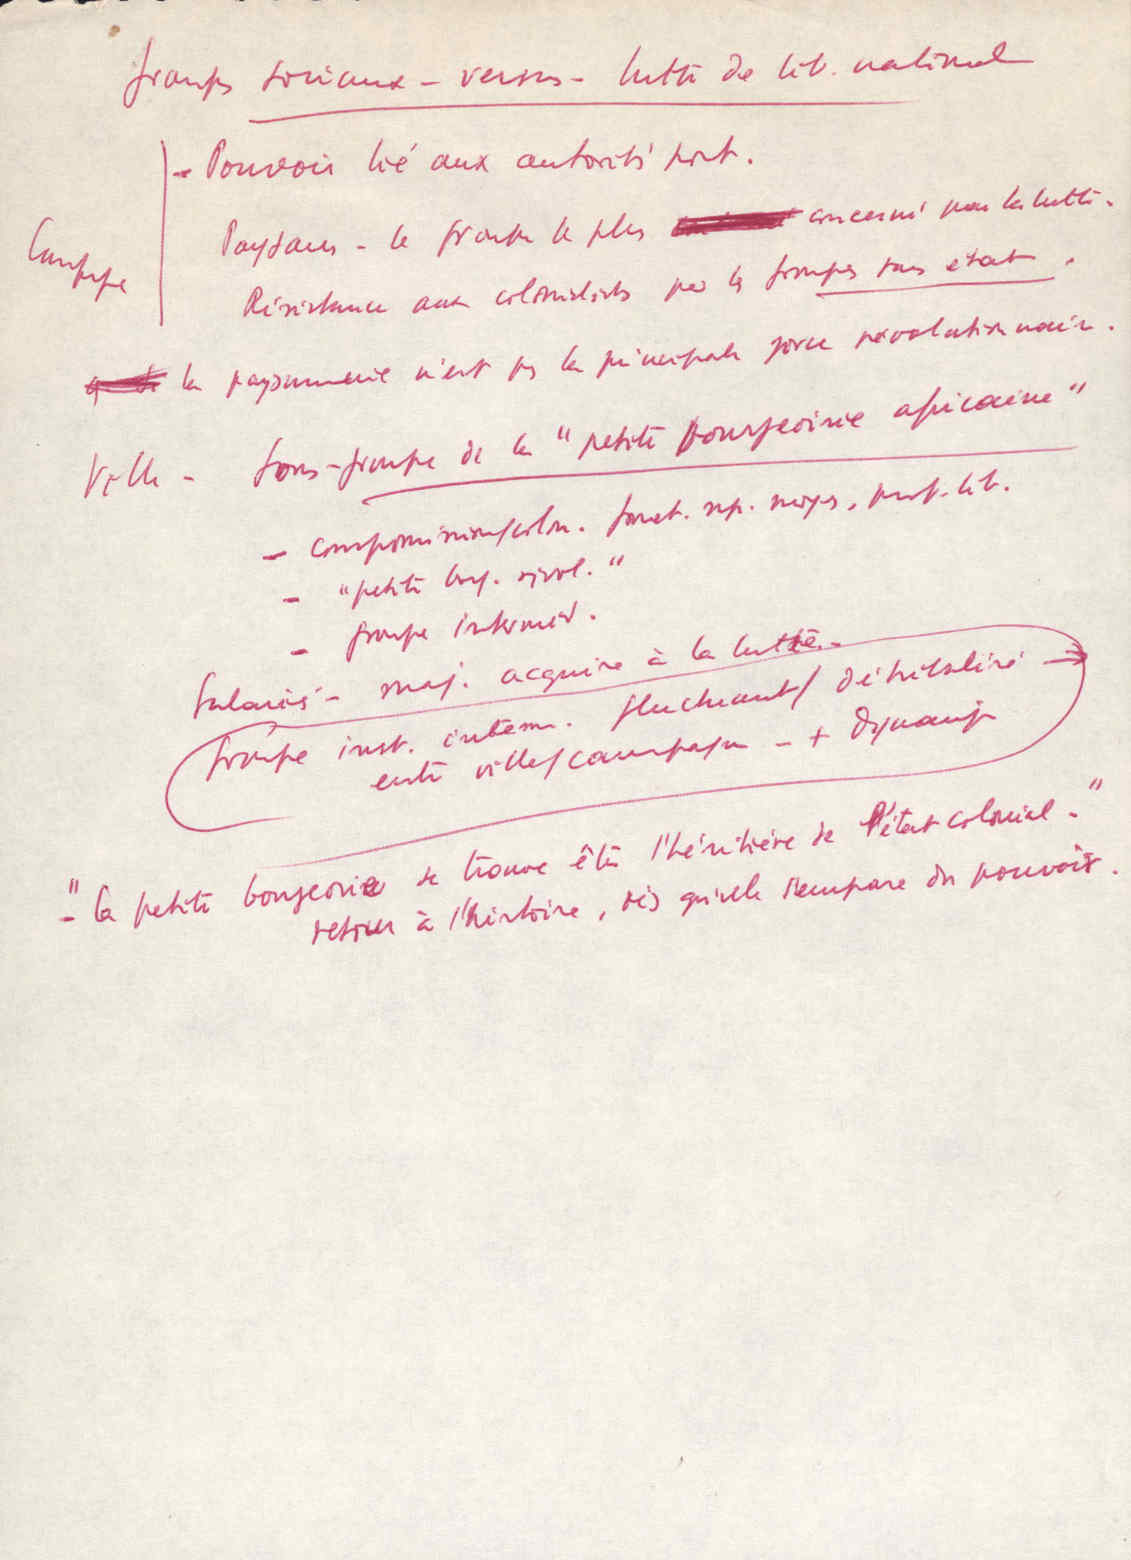 Groupes sociaux - versus - lutte de lib. nationale
- Pouvoir lié aux autorités port.
Campagne
Paysans - le groupe le plus concerné par la lutte.
Résistance aux colonialistes par les groupes sans état.
la paysannerie n'est pas la principale force révolutionnaire.
Ville - Sous-groupe de la "petite bourgeoisie africaine"
- compromission/colon. fonct. sup. moyens, prof. lib.
- "petite bourg. révol."
- groupe interméd.
Salariés - maj. acquise à la lutte.
Groupe inst. interm. fluctuant/détribalisé
entre ville/campagne - + dynamiq
"- la petite bourgeoisie se trouve être l'héritière de l'état colonial."
retour à l'histoire, dès qu'elle s'empare du pouvoir.